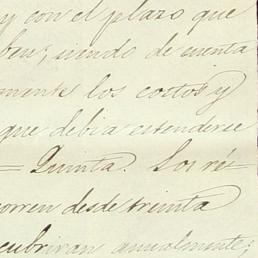 y con el plazo que
ben; siendo de cuenta
mente los costos y
que debia estenderse
= Quinta. Los ré-
orren desde treinta
cubriran anualmente;